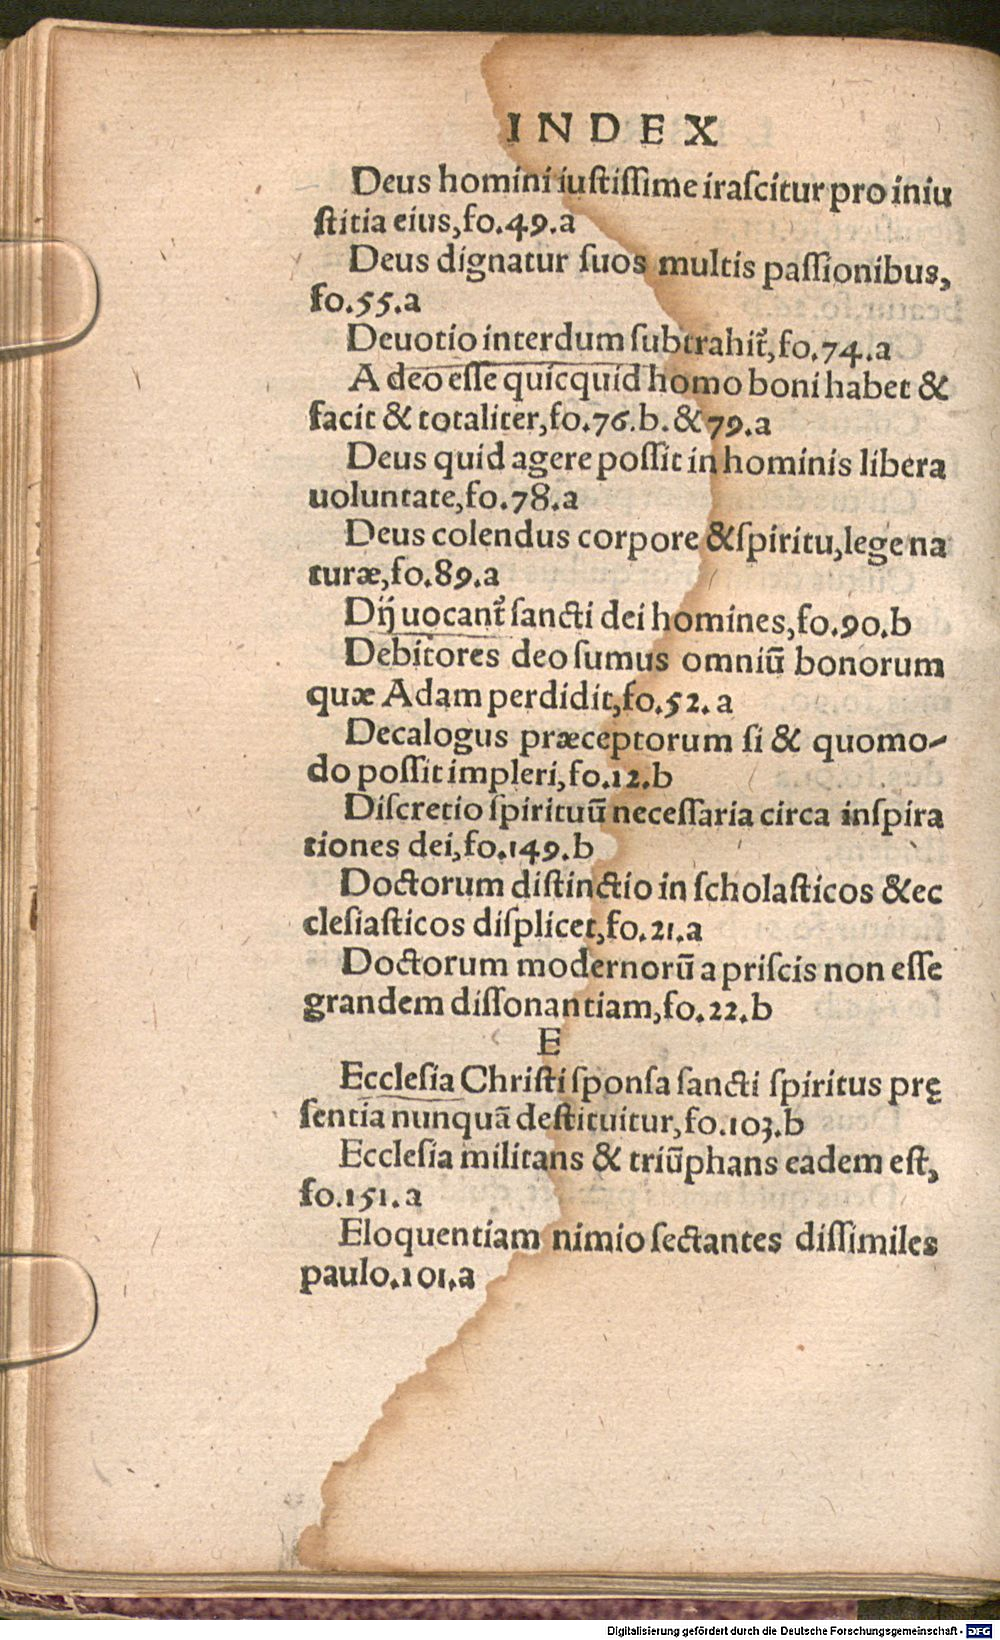 INDEX
Deus homini iuſtiſſime iraſcitur pro iniu
ſtitia eius,fo.49.a
Deus dignatur ſuos multis paſſionibus,
fo.55.a
Deuotio interdum ſubtrahit᷑,fo.74.a
A deo eſſe quicquid homo boni habet &
facit & totaliter,fo.76.b.&79.a
Deus quid agere poſſit in hominis libera
uoluntate,fo.78.a
Deus colendus corpore &ſpiritu,lege na
turæ,fo.89.a
Dij uocant᷑ ſancti dei homines,fo.90.b
Debitores deo ſumus omniū bonorum
quæ Adam perdidit,fo.52.a
Decalogus præceptorum ſi & quomo-
do poſſit impleri,fo.12.b
Diſcretio ſpirituū neceſſaria circa inſpira
tiones dei,fo.149.b
Doctorum diſtinctio in ſcholaſticos &ec
cleſiaſticos diſplicet,fo.21.a
Doctorum modernorū a priſcis non eſſe
grandem diſſonantiam,fo.22.b
E
Eccleſia Chriſti ſponſa ſancti ſpiritus prę
ſentia nunquā deſtituitur,fo.103.b
Eccleſia militans & triūphans eadem eſt,
fo.151.a
Eloquentiam nimio ſectantes diſſimiles
paulo.101.a
Digitalisierung gefördert durch die Deutsche Forschungsgemeinschaft - DFG